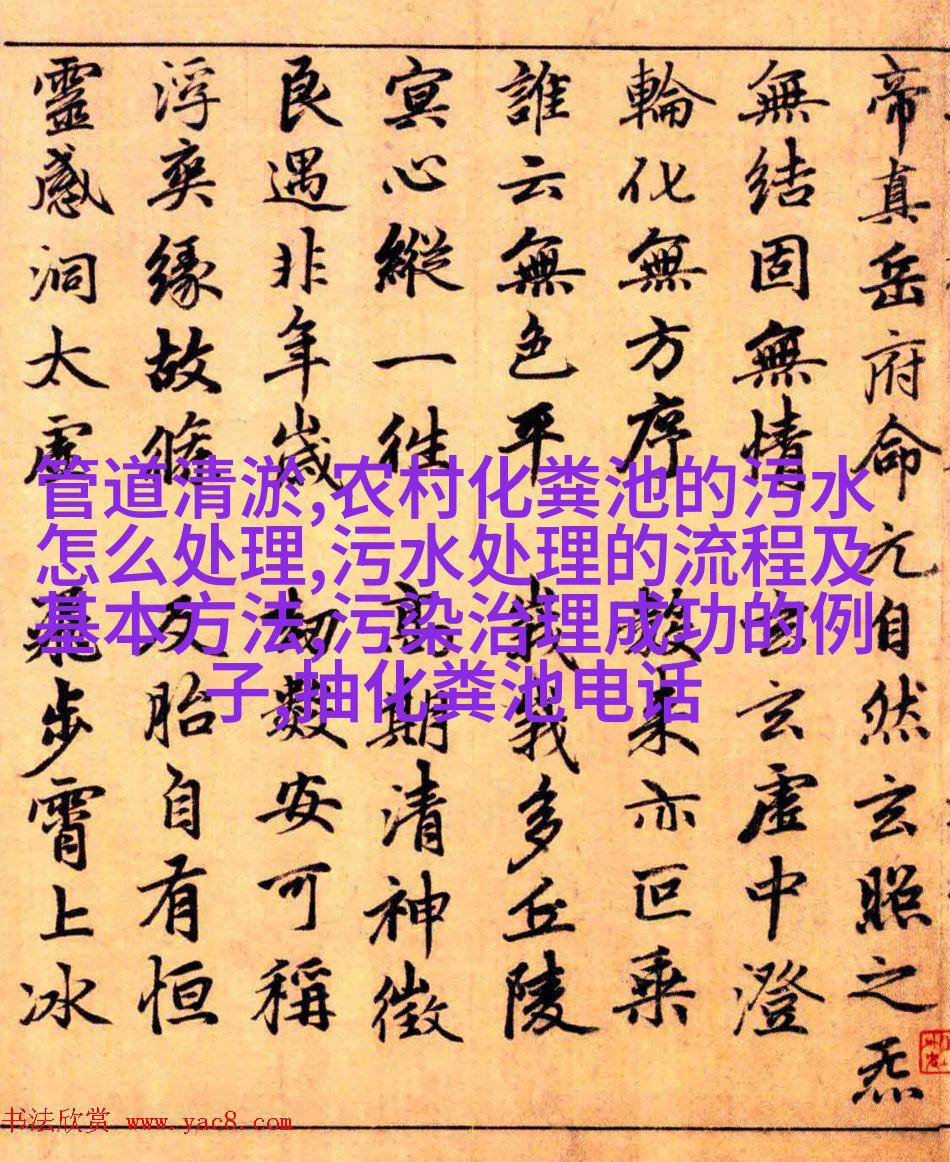 帝真岳府命元自然玄照之炁
無結固無情 玄玄虛中澄
輪化無方序 數來亦叵乗
誰云無色平 峨峨多丘陵
冥心縱一往 高期清神徵
良遇非年歲 劫數安可稱
浮爽緣故條 反胎自有恒
靈感洞太虛 飛步霄上冰
管道清淤,农村化粪池的污水
怎么处理,污水处理的流程及
基本方法,污染治理成功的例
子,抽化粪池电话
书法欣赏 www.yac8.com